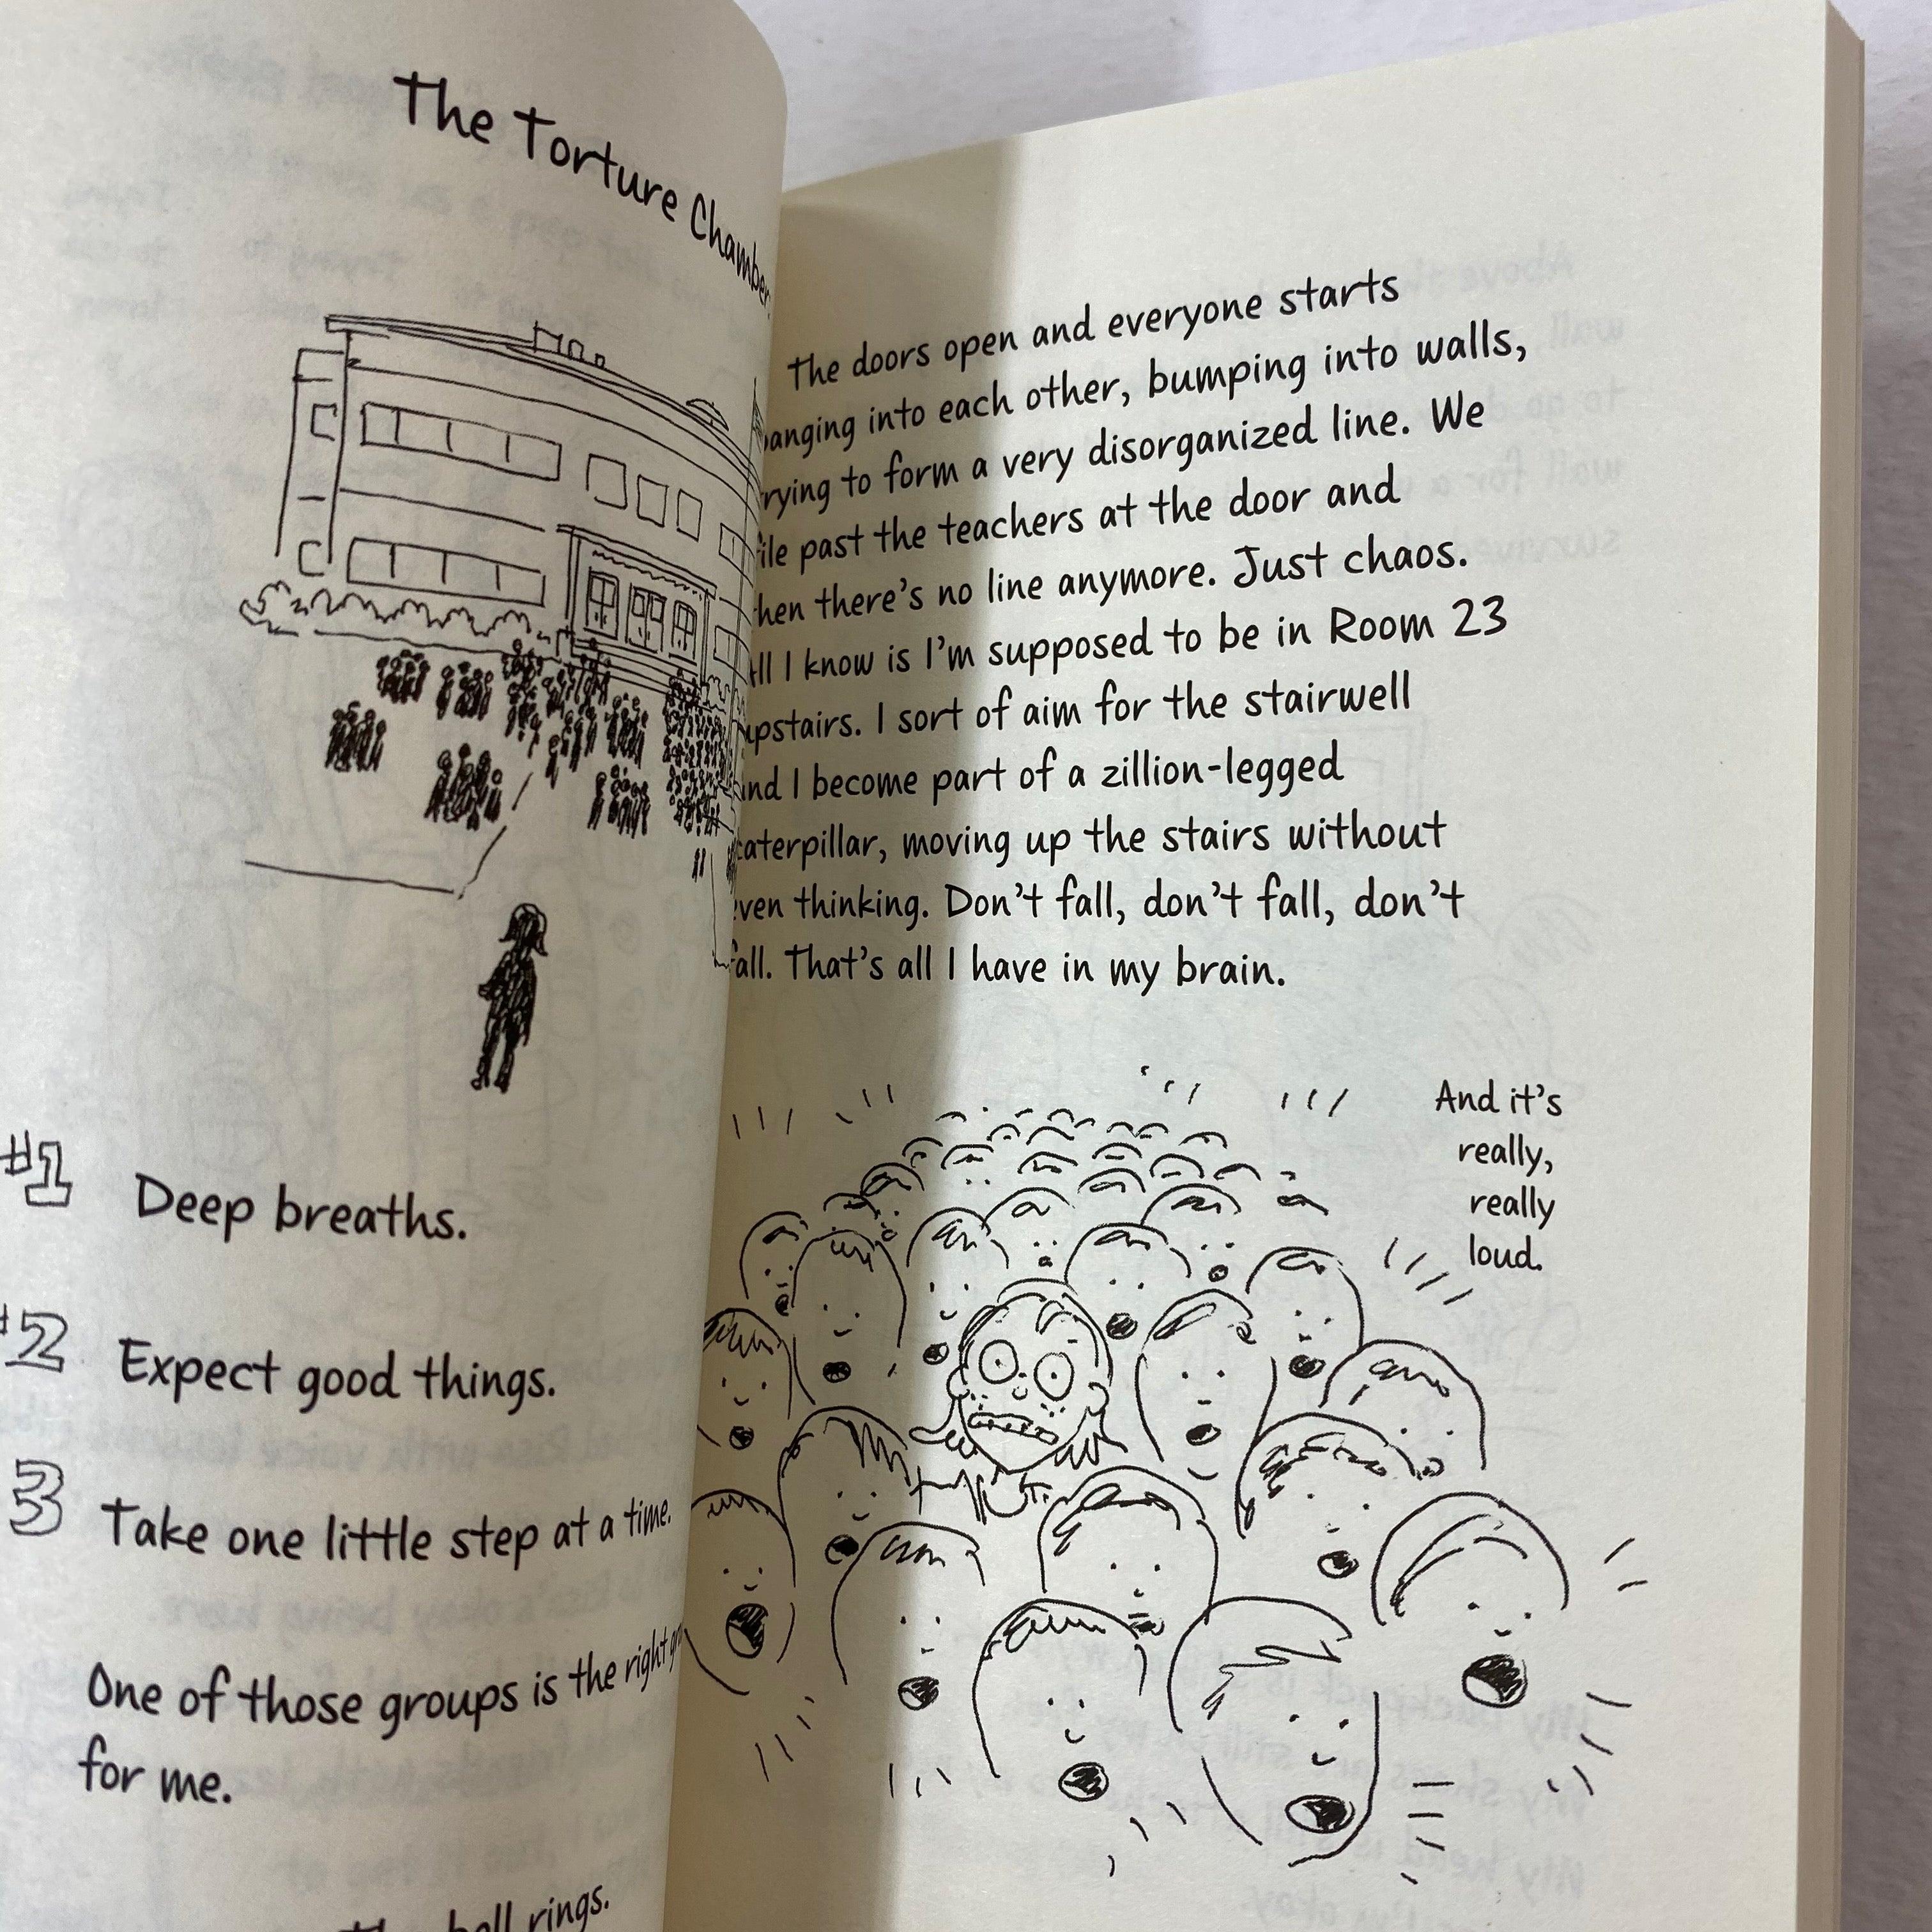 The Torture Chamber
#1 Deep breaths.
#2 Expect good things.
3 Take one little step at a time.
One of those groups is the right
for me.
bell rings.
The doors open and everyone starts
into each other, bumping into walls,
to form a very disorganized line. We
past the teachers at the door and
there's no line anymore. Just chaos.
I know is I'm supposed to be in Room 23
I sort of aim for the stairwell
I become part of a zillion-legged
moving up the stairs without
thinking. Don't fall, don't fall, don't
That's all I have in my brain.
And it's
really,
really
loud.